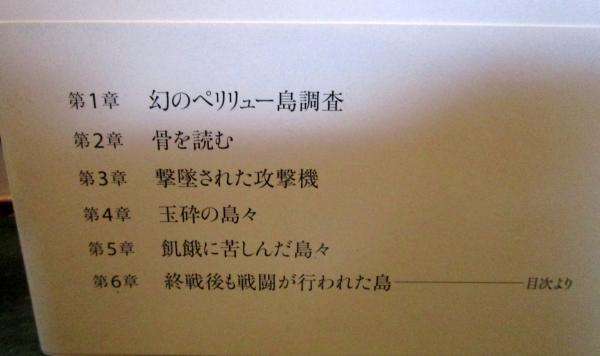 第1章 幻のペリリュー島調査
第2章 骨を読む
第3章 撃墜された攻撃機
第4章 玉砕の島々
第5章 飢餓に苦しんだ島々
第6章 終戦後も戦闘が行われた島――――目次より